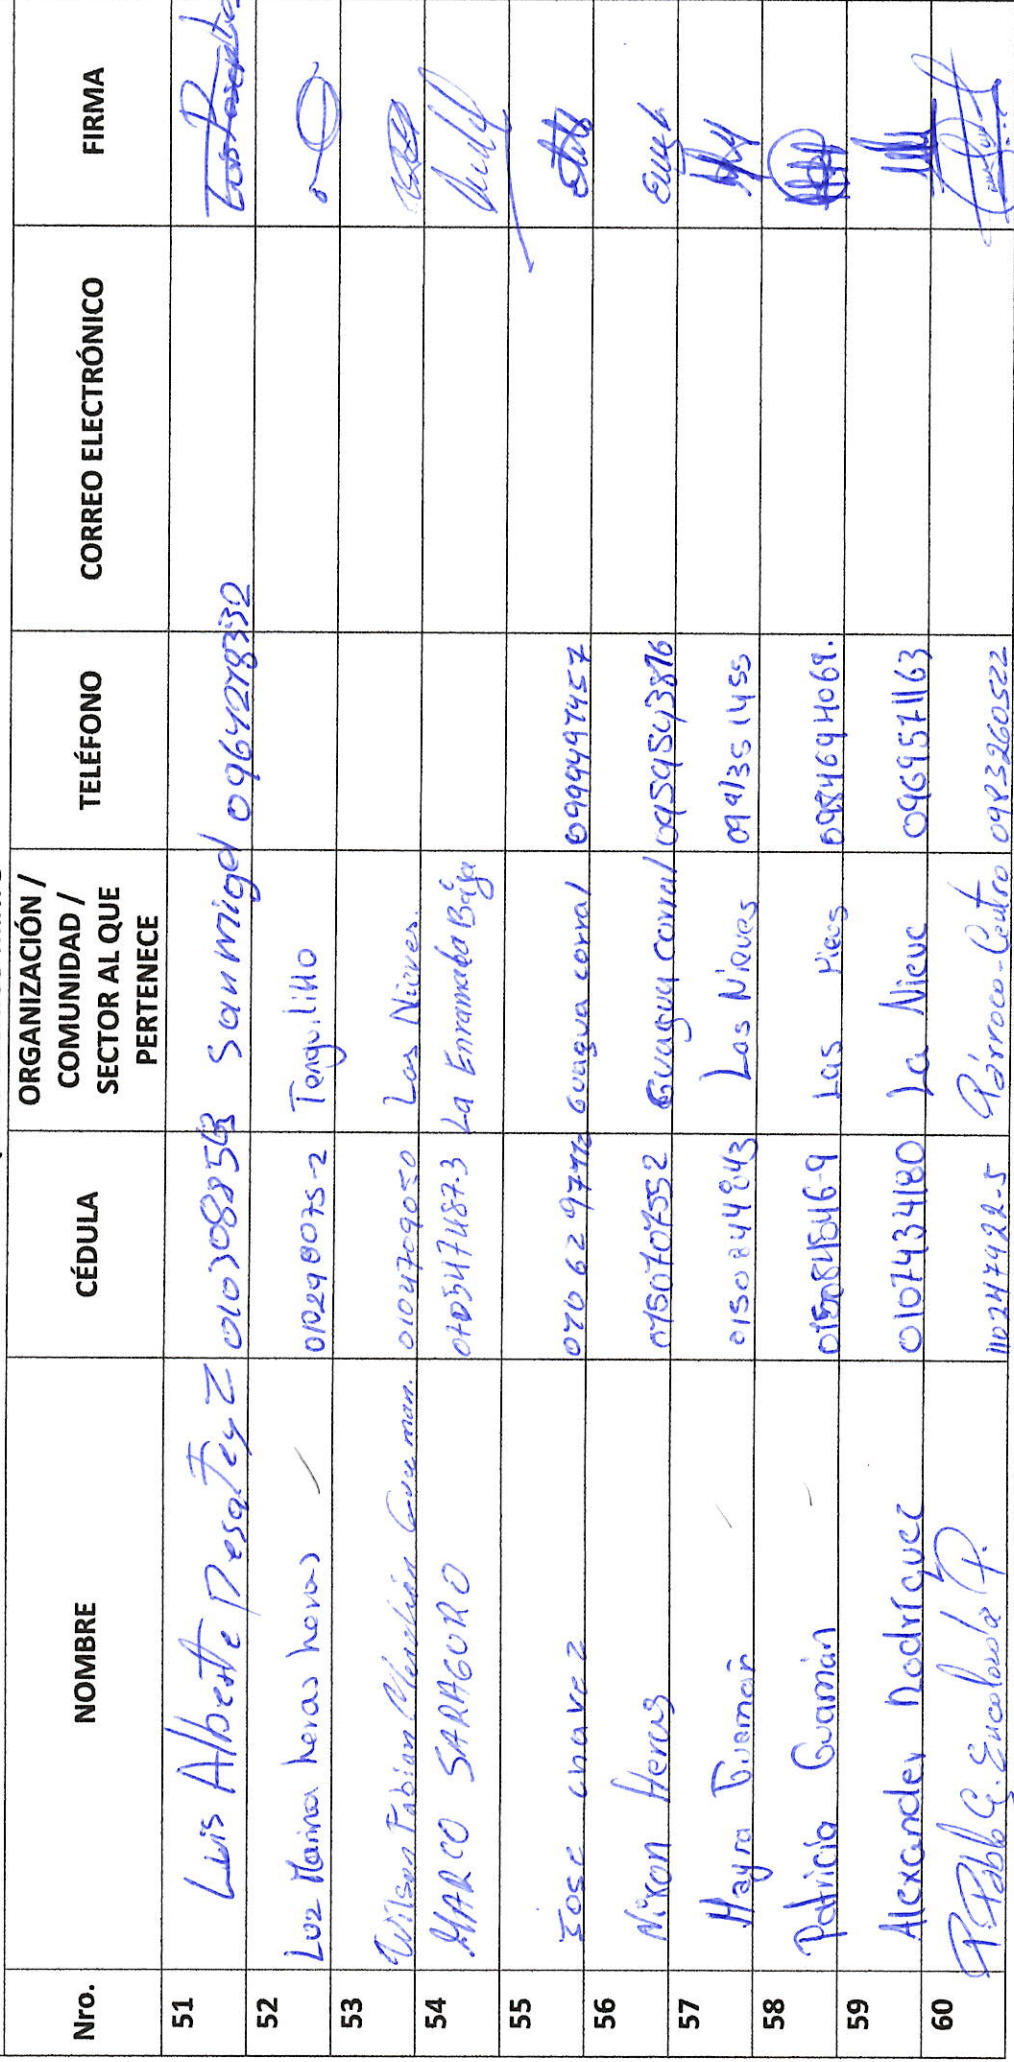 Nro. NOMBRE CÉDULA ORGANIZACIÓN / COMUNIDAD / SECTOR AL QUE PERTENECE TELÉFONO CORREO ELECTRÓNICO FIRMA
51 Luis Alberto Pesatez Z 0103088563 Sanmigel 0964278330
52 Luz Marina heras heras 010298075-2 Tenguillo
53 Wilson Fabian Guaman. 0104709050 Las Nieves.
54 MARCO SARAGURO 070547487-3 La Enramada Baja
55 Jose chavez 070629771 Guagua corral 0999497457
56 Nixon Heras 0750707552 Guagua corral 0959543876
57 Mayra Guamán 0150244843 Las Nieves 0991351455
58 Patricia Guamán 015084546-9 Las 0984694069.
59 Alexander Rodríguez 0107434180 La Nieve 0969571163
60 P. Pablo G. Encalada P. 110247422-5 Párroco-Centro 0983260522